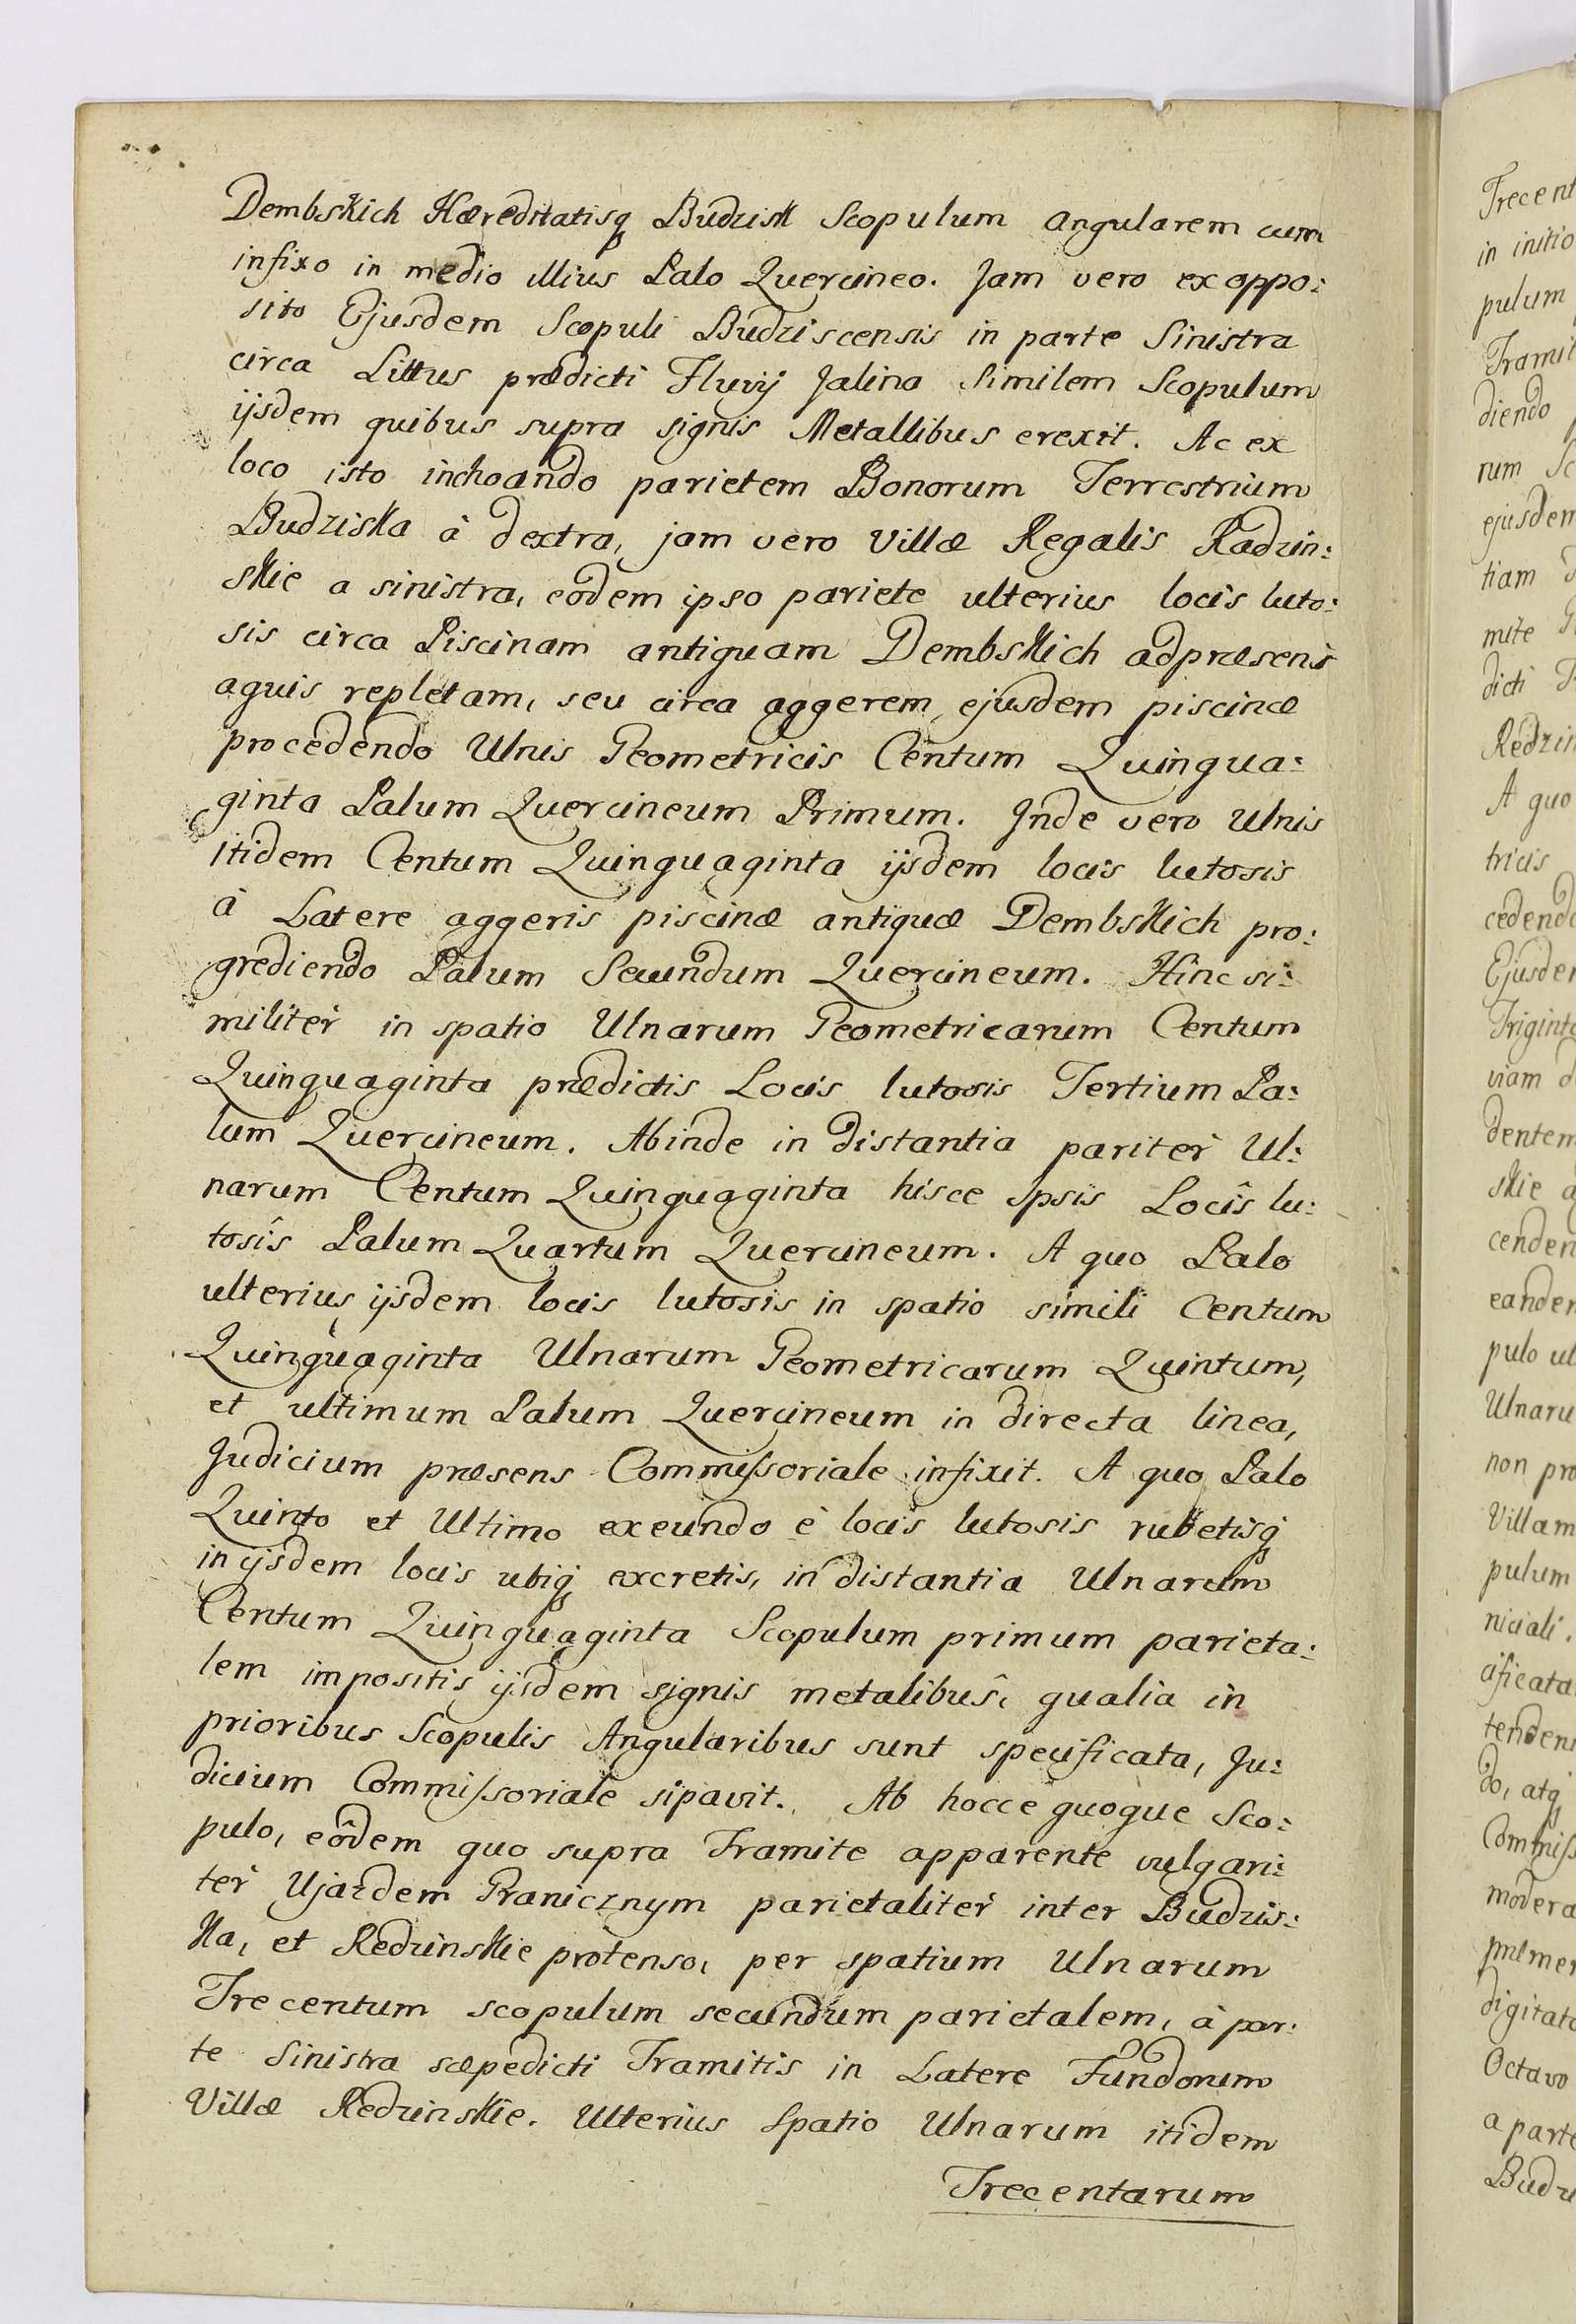 Dembskich Hæreditatisq Budzisk Scopulum angularem cum
infixo in medio illius Palo Quercineo. Jam vero ex oppo:
sito Ejusdem Scopuli Budziscensis in parte Sinistra
circa Littus prædicti Fluvij Jalina Similem Scopulum
ijsdem quibus supra signis Metallibus erexit. Ac ex
loco isto inchoando parietem Bonorum Terrestrium
Budziska à dextra, jam vero Villæ Regalis Radzin:
skie a sinistra, eodem ipso pariete ulterius locis luto:
sis circa Piscinam antiquam Dembskich adpræsens
aquis repletam, seu circa aggerem ejusdem piscinæ
procedendo Ulnis Geometricis Centum Quinqua:
ginta Palum Quercineum Primum. Inde vero Ulnis
itidem Centum Quinquaginta ijsdem locis lutosis
à Latere aggeris piscinæ antiquæ Dembskich pro:
grediendo Palum Secundum Quercineum. Hinc si:
militer in spatio Ulnarum Geometricarum Centum
Quinquaginta prædictis Locis lutosis Tertium Pa:
lum Quercineum. Abinde in distantia pariter Ul:
narum Centum Quinquaginta hisce ipsis Locîs lu:
tosîs Palum Quartum Quercineum. A quo Palo
ulterius ijsdem locis lutosis in spatio simili Centum
Quinquaginta Ulnarum Geometricarum Quintum,
et ultimum Palum Quercineum in directa linea,
Judicium præsens Commissoriale infixit. A quo Palo
Quinto et Ultimo exeundo è locis lutosis rubetisq
in ijsdem locis ubiq excretis, in distantia Ulnarum
Centum Quinquaginta Scopulum primum parieta:
lem impositis ijsdem signis metalibus, qualia in
prioribus Scopulis Angularibus sunt specificata, Ju:
dicium Commissoriale sipavit. Ab hocce quoque Sco:
pulo, eôdem quo supra Tramite apparente vulgari:
ter Ujazdem Granicznym parietaliter inter Budzis:
ka, et Redzinskie protenso, per spatium Ulnarum
Trecentum scopulum secundum parietalem, à par:
te Sinistra sæpedicti Tramitis in Latere Fundorum
Villæ Redzinskie. Ulterius Spatio Ulnarum itidem
Trecentarum
Trecent
in initio
pulum
Tramit
diendo
rum Sc
ejusdem
tiam
mite
dicti
Redzin
A quo
tricis
cedendo
Ejusdem
Triginta
viam
dentem
skie
cenden
eandem
pulo ul
Ulnaru
non pro
Villam
pulum
niciali.
cificata
tenden
do, atq
Commiss
modera
præmer
digitato
Octavo
a parte
Budz